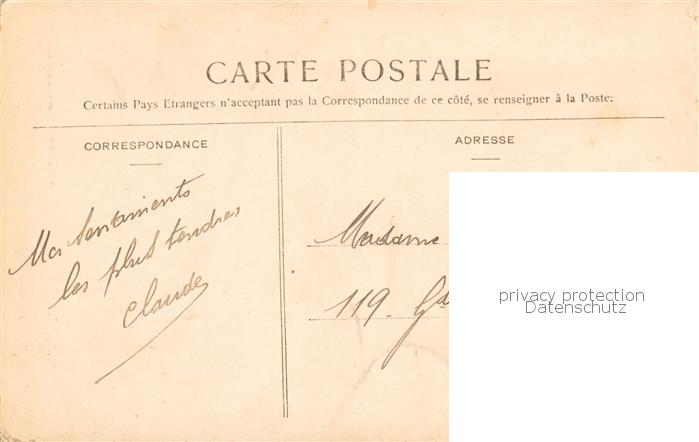 CARTE POSTALE
Certains Pays Etrangers n'acceptent pas la Correspondance de ce côté, se renseigner à la Poste.
CORRESPONDANCE
ADRESSE
Mes sentiments
les plus tendres
Claude
Madame
119. Gd
privacy protection
Datenschutz